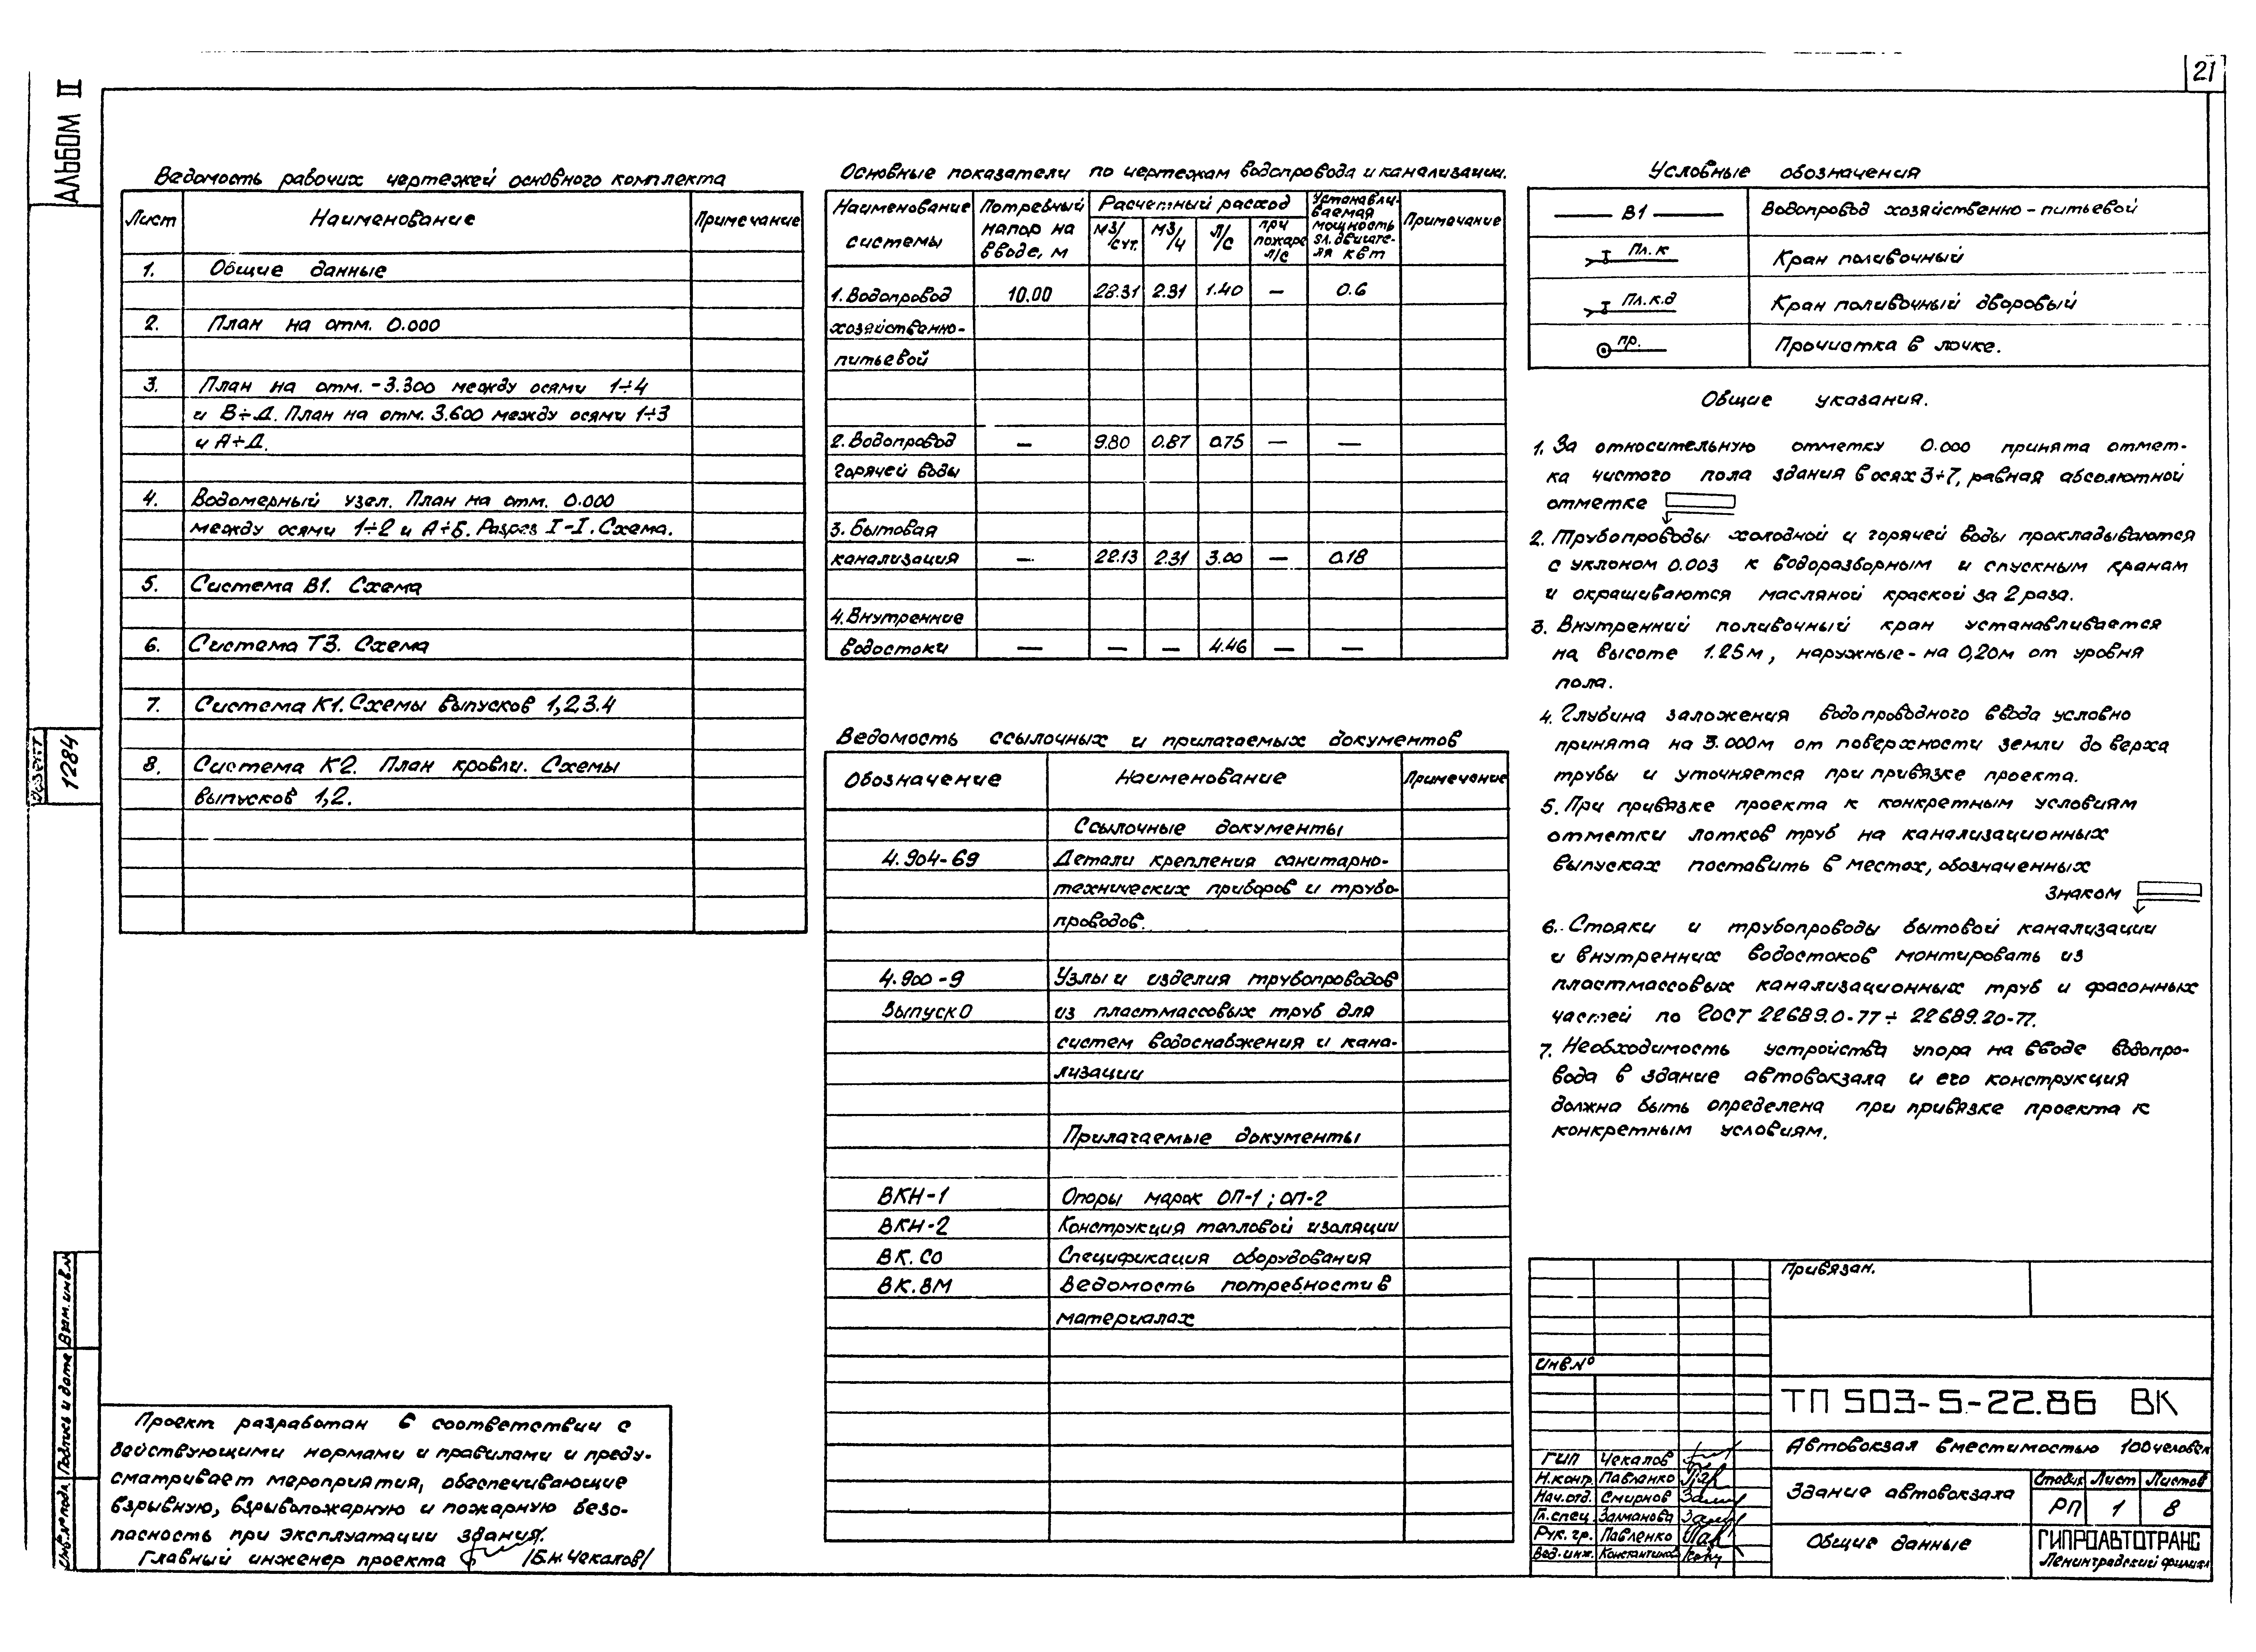 21
АЛЬБОМ II
Ведомость рабочих чертежей основного комплекта
Лист Наименование Примечание
1. Общие данные
2. План на отм. 0.000
3. План на отм. -3.300 между осями 1÷4
и В÷Д. План на отм. 3.600 между осями 1÷3
и А÷Д.
4. Водомерный узел. План на отм. 0.000
между осями 1÷2 и А÷Б. Разрез I-I. Схема.
5. Система В1. Схема
6. Система Т3. Схема
7. Система К1. Схемы выпусков 1,2,3.4
8. Система К2. План кровли. Схемы
выпусков 1,2.
Основные показатели по чертежам водопровода и канализации.
Наименование системы Потребный напор на вводе, м Расчетный расход Устанавливаемая мощность эл. двигателя квт Примечание
м3/сут. м3/ч л/с при пожаре л/с
1. Водопровод 10.00 22.31 2.31 1.40 — 0.6
хозяйственно-
питьевой
2. Водопровод — 9.80 0.87 0.75 — —
горячей воды
3. Бытовая
канализация — 22.13 2.31 3.00 — 0.18
4. Внутренние
водостоки — — — 4.46 — —
Ведомость ссылочных и прилагаемых документов
Обозначение Наименование Примечание
Ссылочные документы
4.904-69 Детали крепления санитарно-
технических приборов и трубо-
проводов.
4.900-9 Узлы и изделия трубопроводов
Выпуск 0 из пластмассовых труб для
систем водоснабжения и кана-
лизации
Прилагаемые документы
ВКН-1 Опоры марок ОП-1; ОП-2
ВКН-2 Конструкция тепловой изоляции
ВК.СО Спецификация оборудования
ВК.ВМ Ведомость потребности в
материалах
Условные обозначения
В1 Водопровод хозяйственно-питьевой
Пл.к Кран поливочный
Пл.к.д Кран поливочный дворовый
пр. Прочистка в лючке.
Общие указания.
1. За относительную отметку 0.000 принята отмет-
ка чистого пола здания в осях 3÷7, равная абсолютной
отметке
2. Трубопроводы холодной и горячей воды прокладываются
с уклоном 0.003 к водоразборным и спускным кранам
и окрашиваются масляной краской за 2 раза.
3. Внутренний поливочный кран устанавливается
на высоте 1.25м, наружные - на 0,20м от уровня
пола.
4. Глубина заложения водопроводного ввода условно
принята на 3.000м от поверхности земли до верха
трубы и уточняется при привязке проекта.
5. При привязке проекта к конкретным условиям
отметки лотков труб на канализационных
выпусках поставить в местах, обозначенных
знаком
6. Стояки и трубопроводы бытовой канализации
и внутренних водостоков монтировать из
пластмассовых канализационных труб и фасонных
частей по ГОСТ 22689.0-77 ÷ 22689.20-77.
7. Необходимость устройства упора на вводе водопро-
вода в здание автовокзала и его конструкция
должна быть определена при привязке проекта к
конкретным условиям.
1284
Взам. инв.№
Подпись и дата
Инв.№ подл.
Проект разработан в соответствии с
действующими нормами и правилами и преду-
сматривает мероприятия, обеспечивающие
взрывную, взрывопожарную и пожарную безо-
пасность при эксплуатации здания.
Главный инженер проекта /Б.Н. Чекалов/
Привязан.
Инв.№
ТП 503-5-22.86 ВК
Автовокзал вместимостью 100 человек
ГИП Чекалов
Н.контр. Павленко
Нач.отд. Смирнов
Гл.спец. Залманова
Рук. гр. Павленко
Вед.инж. Константинов
Здание автовокзала
Стадия Лист Листов
РП 1 8
Общие данные
ГИПРОАВТОТРАНС
Ленинградский филиал